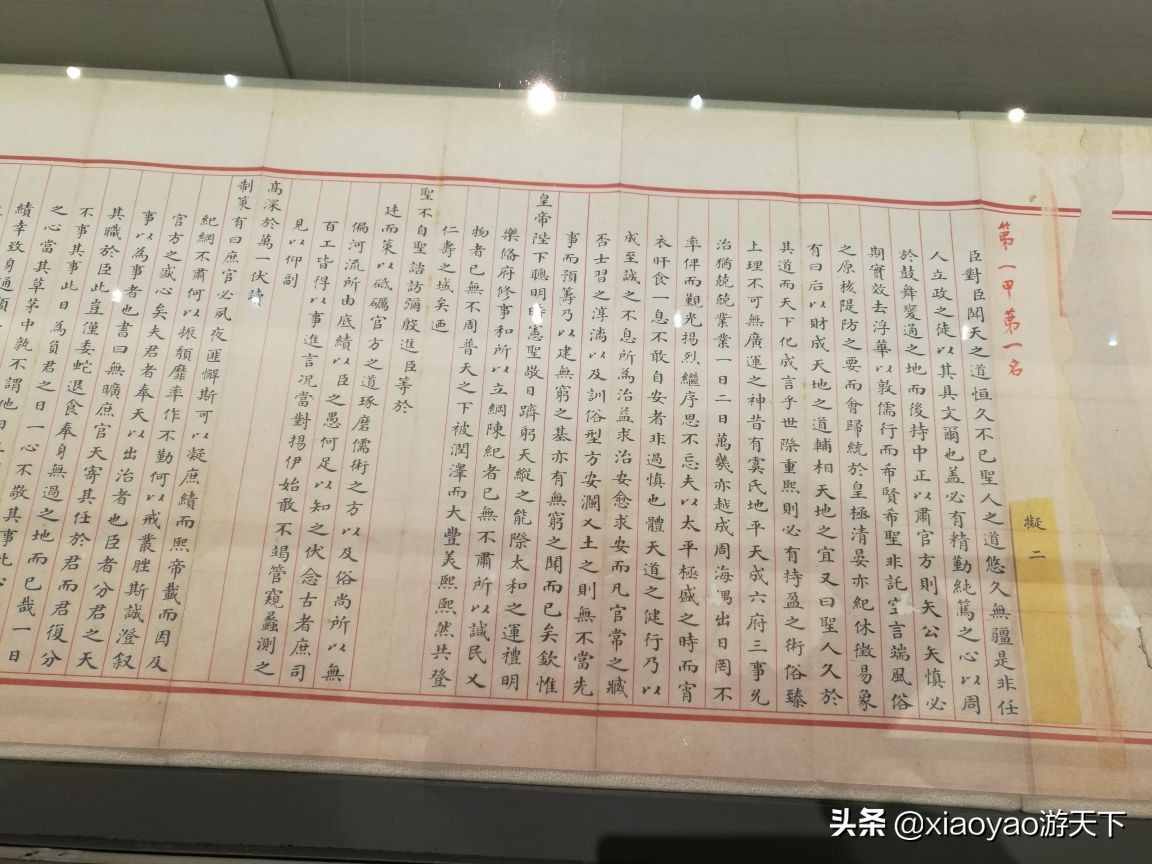 第一甲第一名
擬二
臣對臣聞天之道恒久不已聖人之道悠久無疆是非任
人立政之徒以其具文爾也蓋必有精勤純篤之心以周
於鼓舞慶適之地而後持中正以肅官方則矢公矢慎必
期實效去浮華以敦儒行而希賢希聖非託空言端風俗
之原核隄防之要而會歸統於皇極清晏亦紀休徵易象
有曰后以財成天地之道輔相天地之宜又曰聖人久於
其道而天下化成言乎世際重熙則必有持盈之術俗臻
上理不可無廣運之神昔有虞氏地平天成六府三事允
治猶兢兢業業一日二日萬幾亦越成周海隅出日罔不
率俾而覲光揚烈繼序思不忘夫以太平極盛之時而宵
衣旰食一息不敢自安者非過慎也體天道之健行乃以
成至誠之不息所為治益求治安愈求安而凡官常之臧
否士習之淳漓以及訓俗型方安瀾乂土之則無不當先
事而預籌乃以建無窮之基亦有無窮之聞而已矣欽惟
皇帝陛下聰明時憲聖敬日躋躬天縱之能際太和之運禮明
樂備府修事和所以立綱陳紀者已無不肅所以諴民乂
物者已無不周普天之下被潤澤而大豐美熙熙然共登
仁壽之域矣迺
聖不自聖諮訪彌殷進臣等於
廷而策以砥礪官方之道琢磨儒術之方以及俗尚所以無
偏河流所由底績以臣之愚何足以知之伏念古者庶司
百工皆得以事進言況當對揚伊始敢不竭管窺蠡測之
見以仰副
高深於萬一伏讀
制策有曰庶官必夙夜匪懈斯可以凝庶績而熙帝載而因及
紀綱不肅何以振頹靡率作不勤何以戒叢脞斯誠澄叙
官方之盛心矣夫君者奉天以出治者也臣者分君之天
事以為事者也書曰無曠庶官天寄其任於君而君復分
其職於臣此豈僅委蛇退食奉身無過之地而已哉一日
不事其事此日為負君之日一心不敬其事此心
之心當其草茅中孰不謂他日
績幸致身通顯